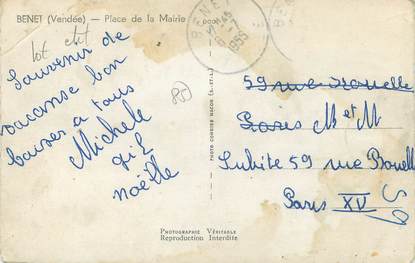 BENET (Vendée) — Place de la Mairie
lot
BENET
1955
Souvenir de
vacanse bon
baiser a tous
Michele
gil
noëlle
PHOTO COMBIER MACON (S.-et-L.)
59 rue
Paris M et M
Subite 59 rue
Paris XV
PHOTOGRAPHIE VÉRITABLE
Reproduction Interdite